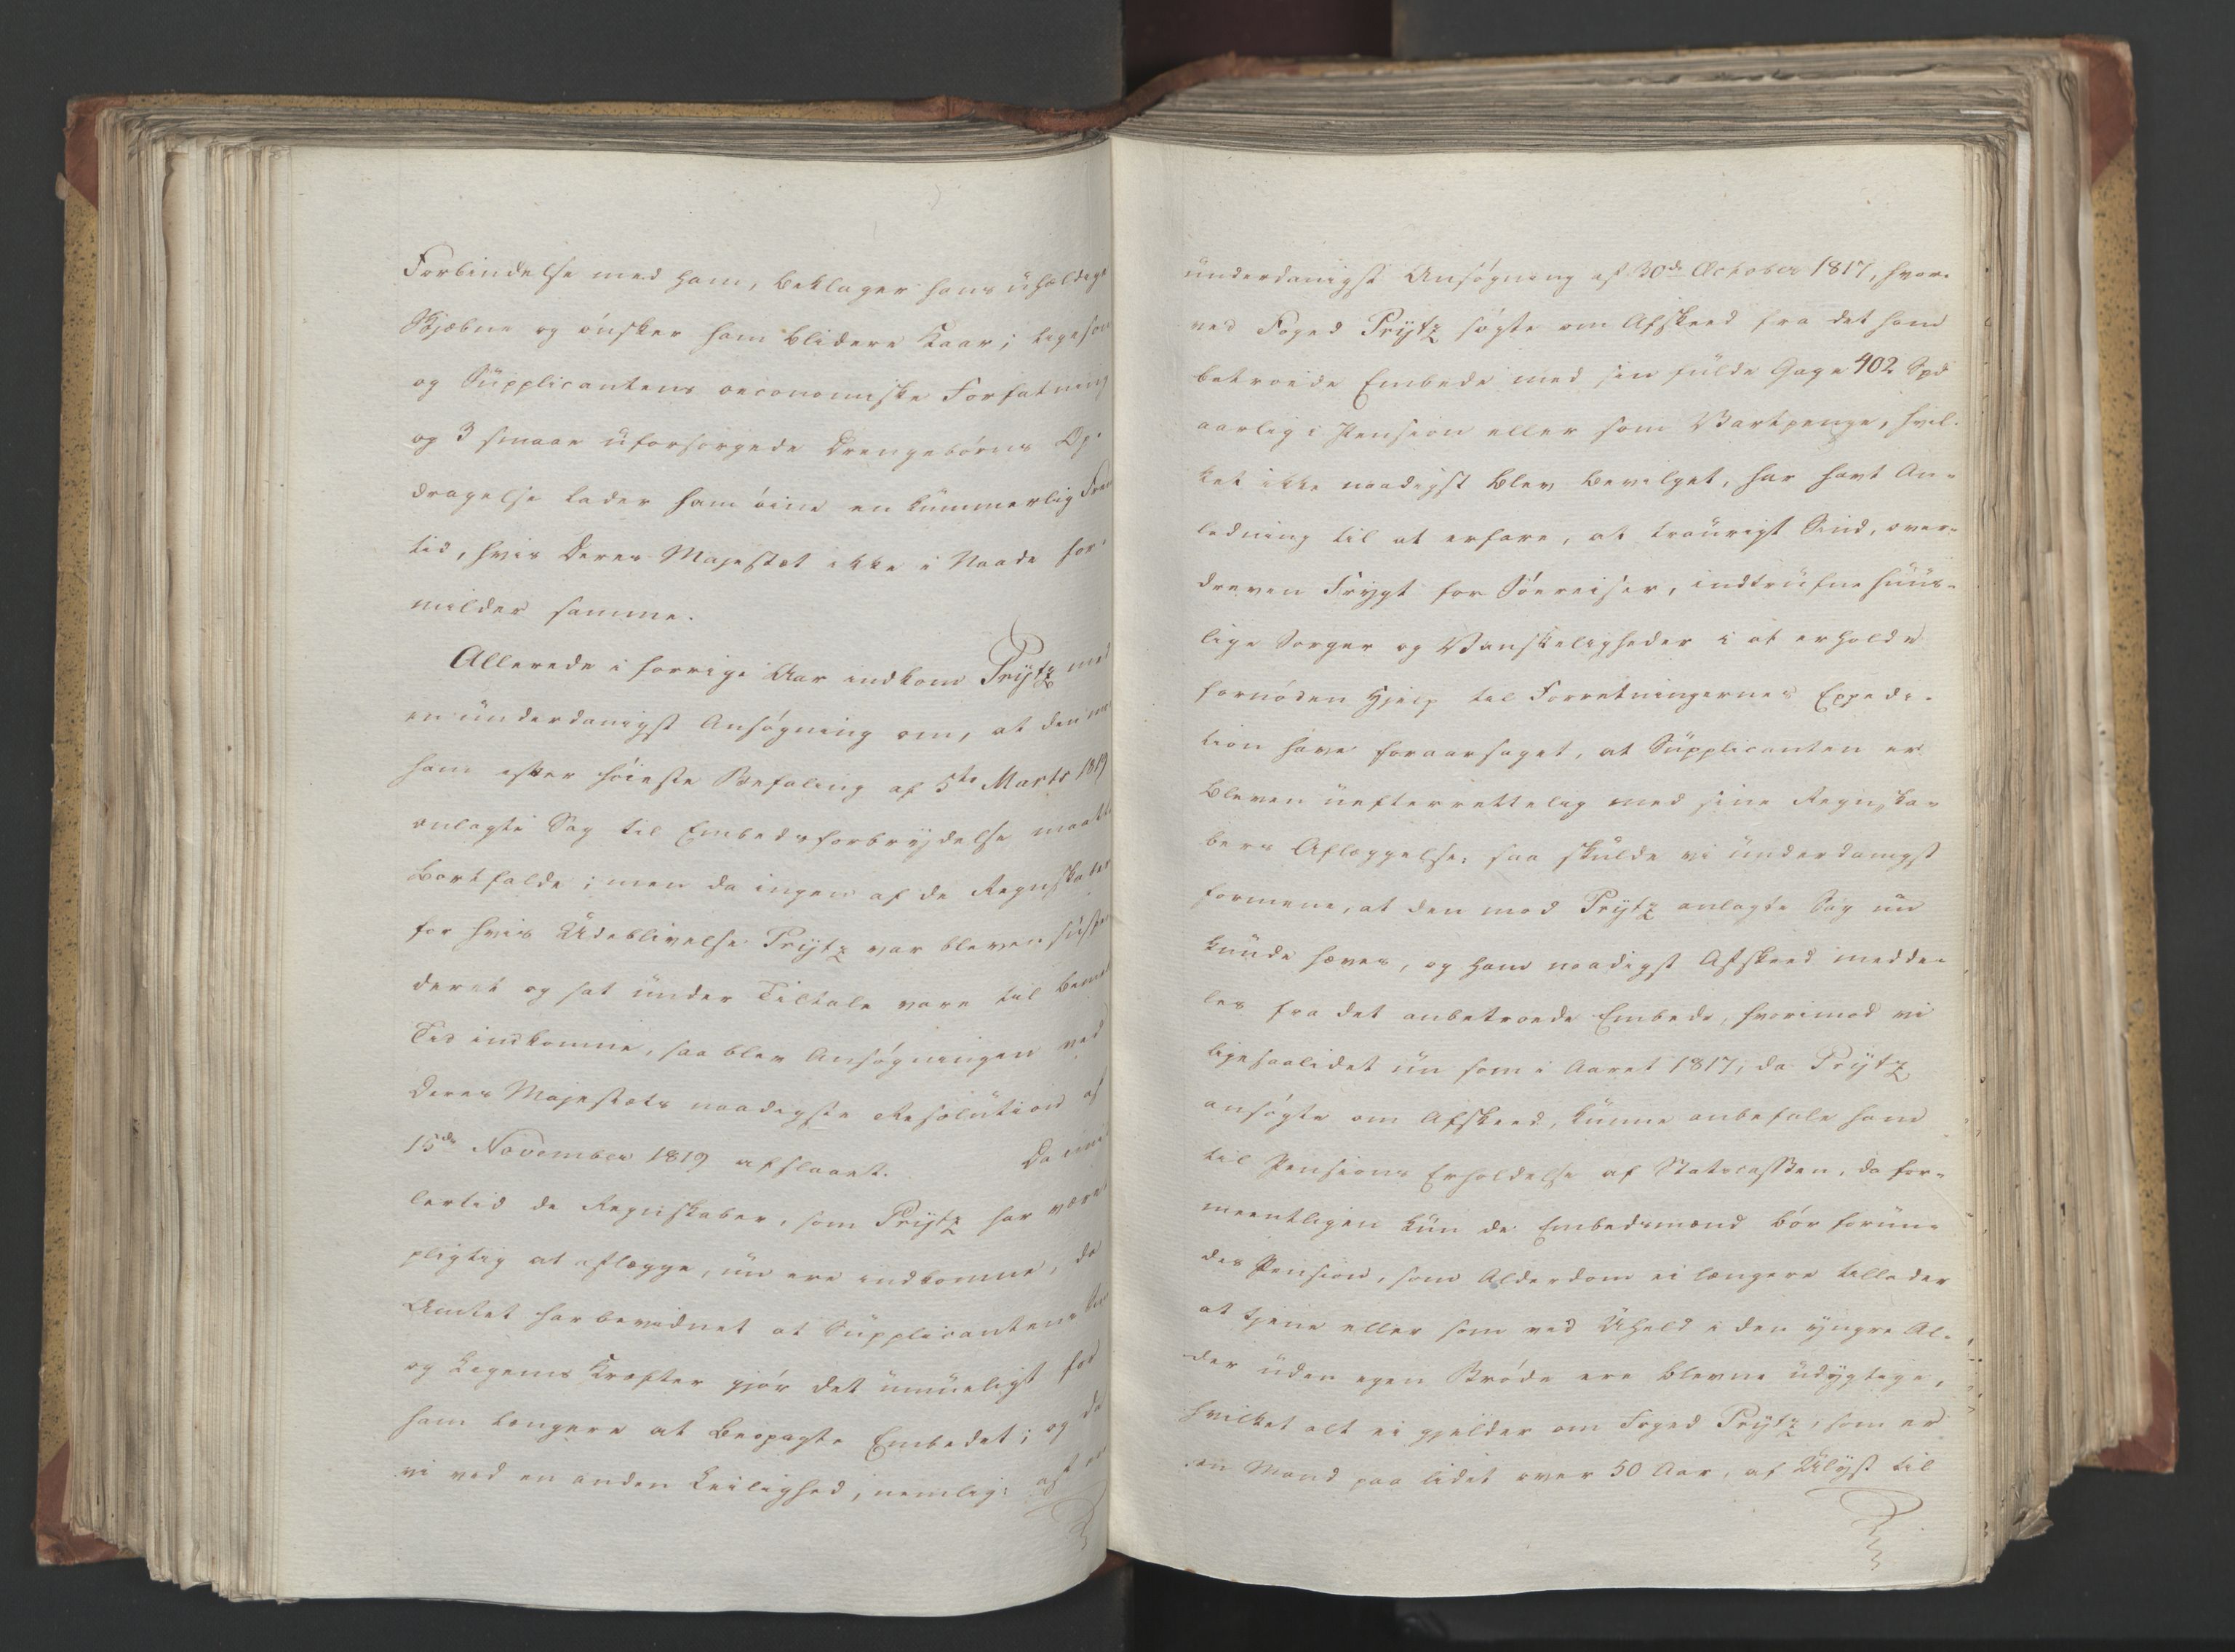 Forbindelse med ham, beklager hans uheldige
Skjæbne og ønsker ham blidere Kaar; ligesom
og Supplicantens oeconomiske Forfatning
og 3 smaae uforsørgede Drengebørns Op-
dragelse lader ham øine en kummerlig Frem
tid, hvis Deres Majestæt ikke i Naade for-
milder samme.
Allerede i forrige Aar indkom Prÿtz med
en underdanigst Ansøgning om, at den mod
ham efter høieste Befaling af 5te Marts 1819
anlagte Sag til Embedsforbrydelse maatte
bortfalde; men da ingen af de Regnskaber
for hvis Udeblivelse Prÿtz var bleven suspen
deret og sat under Tiltale vare til bemeldte
Tid indkomne, saa blev Ansøgningen ved
Deres Majestæts naadigste Resolution af
15de November 1819 afslaaet. Da imid
lertid de Regnskaber, som Prÿtz har været
pligtig at aflægge, nu ere indkomne, da
Amtet har bevidnet at Supplicantens
og Legems Kræfter gjør det umueligt for
ham længere at beopagte Embedet; og da
vi ved en anden Leilighed, nemlig:
underdanigst Ansøgning af 30de October 1817, hvor-
ved Foged Prÿtz søgte om Afskeed fra det ham
betroede Embede med sin fulde Gage 402 Spd
aarlig i Pension eller som Vartpenge, hvil-
ket ikke naadigst blev bevilget, har havt An-
ledning til at erfare, at traurigt Sind, over-
dreven Frygt for Søereiser, indtrufne huus-
lige Sorger og Vanskeligheder i at erholde
fornøden Hjelp til Forretningernes Expedi-
tion have foraarsaget, at Supplicanten er
bleven uefterrettelig med sine Regnska-
bers Aflæggelse; saa skulde vi underdanigst
formene, at den mod Prÿtz anlagte Sag nu
kunde hæves, og ham naadigst Afskeed medde-
les fra det anbetroede Embede, hvorimod vi
ligesaalidet nu som i Aaret 1817, da Prÿtz
ansøgte om Afskeed, kunne anbefale ham
til Pensions Erholdelse af Statscassen, da for-
meentligen kun de Embedsmænd bør forun-
des Pension, som Alderdom ei længere tillader
at tjene eller som ved Uheld i den yngre Al-
der uden egen Brøde ere blevne udygtige,
hvilket alt ei gjelder om Foged Prÿtz, som er
en Mand paa lidet over 50 Aar, af Ulyst til